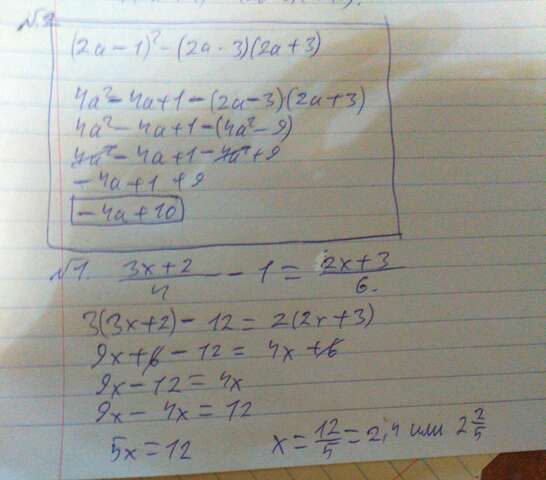 √2.
(2a - 1)² - (2a - 3)(2a + 3)
4a² - 4a + 1 - (2a - 3)(2a + 3)
4a² - 4a + 1 - (4a² - 9)
4a² - 4a + 1 - 4a² + 9
- 4a + 1 + 9
- 4a + 10
√1. (3x + 2)/4 - 1 = (2x + 3)/6.
3(3x + 2) - 12 = 2(2x + 3)
9x + 6 - 12 = 4x + 6
9x - 12 = 4x
9x - 4x = 12
5x = 12 x = 12/5 = 2,4 или 2 2/5